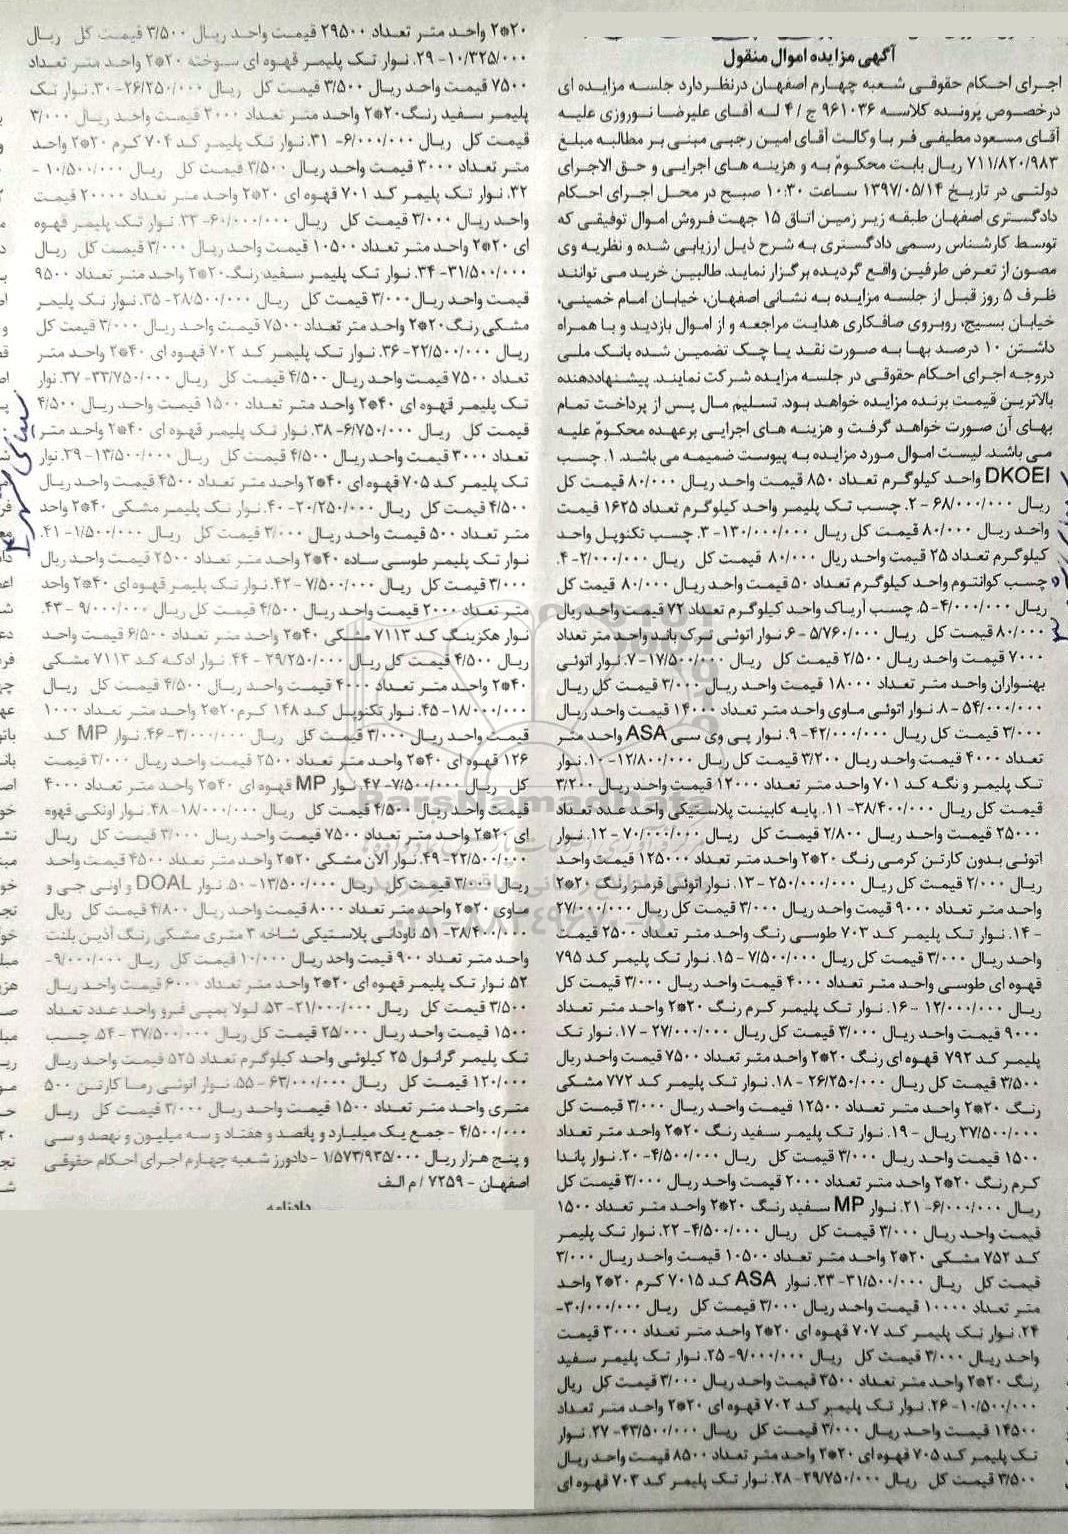 آگهی مزایده اموال منقول
اجرای احکام حقوقی شعبه چهارم اصفهان درنظر دارد جلسه مزایده ای
درخصوص پرونده کلاسه ۹۶۱۰۳۶ ج / ۴ له آقای علیرضا نوروزی علیه
آقای مسعود مطیفی فر با وکالت آقای امین رجبی مبنی بر مطالبه مبلغ
۷۱۱/۸۲۰/۹۸۳ ریال بابت محکومٌ به و هزینه های اجرایی و حق الاجرای
دولتی در تاریخ ۱۳۹۷/۰۵/۱۴ ساعت ۱۰:۳۰ صبح در محل اجرای احکام
دادگستری اصفهان طبقه زیر زمین اتاق ۱۵ جهت فروش اموال توقیفی که
توسط کارشناس رسمی دادگستری به شرح ذیل ارزیابی شده و نظریه وی
مصون از تعرض طرفین واقع گردیده برگزار نماید. طالبین خرید می توانند
ظرف ۵ روز قبل از جلسه مزایده به نشانی اصفهان، خیابان امام خمینی،
خیابان بسیج، روبروی صافکاری هدایت مراجعه و از اموال بازدید و با همراه
داشتن ۱۰ درصد بها به صورت نقد یا چک تضمین شده بانک ملی
دروجه اجرای احکام حقوقی در جلسه مزایده شرکت نمایند. پیشنهاددهنده
بالاترین قیمت برنده مزایده خواهد بود. تسلیم مال پس از پرداخت تمام
بهای آن صورت خواهد گرفت و هزینه های اجرایی برعهده محکومٌ علیه
می باشد. لیست اموال مورد مزایده به پیوست ضمیمه می باشد. ۱. چسب
DKOEI واحد کیلوگرم تعداد ۸۵۰ قیمت واحد ریال ۸۰/۰۰۰ قیمت کل
ریال ۶۸/۰۰۰/۰۰۰ - ۲. چسب تک پلیمر واحد کیلوگرم تعداد ۱۶۲۵ قیمت
واحد ریال ۸۰/۰۰۰ قیمت کل ریال ۱۳۰/۰۰۰/۰۰۰- ۳. چسب تکنوپل واحد
کیلوگرم تعداد ۲۵ قیمت واحد ریال ۸۰/۰۰۰ قیمت کل ریال ۲/۰۰۰/۰۰۰- ۴.
چسب کوانتوم واحد کیلوگرم تعداد ۵۰ قیمت واحد ریال ۸۰/۰۰۰ قیمت کل
ریال ۴/۰۰۰/۰۰۰- ۵. چسب آریاک واحد کیلوگرم تعداد ۷۲ قیمت واحد ریال
۸۰/۰۰۰ قیمت کل ریال ۵/۷۶۰/۰۰۰ - ۶. نوار اتوئی ترک باند واحد متر تعداد
۷۰۰۰ قیمت واحد ریال ۲/۵۰۰ قیمت کل ریال ۱۷/۵۰۰/۰۰۰- ۷. نوار اتوئی
بهنوازان واحد متر تعداد ۱۸۰۰۰ قیمت واحد ریال ۳/۰۰۰ قیمت کل ریال
۵۴/۰۰۰/۰۰۰ - ۸. نوار اتوئی ماوی واحد متر تعداد ۱۴۰۰۰ قیمت واحد ریال
۳/۰۰۰ قیمت کل ریال ۴۲/۰۰۰/۰۰۰- ۹. نوار پی وی سی ASA واحد متر
تعداد ۴۰۰۰ قیمت واحد ریال ۳/۲۰۰ قیمت کل ریال ۱۲/۸۰۰/۰۰۰- ۱۰. نوار
تک پلیمر و نگه کد ۷۰۱ واحد متر تعداد ۱۲۰۰۰ قیمت واحد ریال ۳/۲۰۰
قیمت کل ریال ۳۸/۴۰۰/۰۰۰- ۱۱. پایه کابینت پلاستیکی واحد عدد تعداد
۲۵۰۰۰ قیمت واحد ریال ۲/۸۰۰ قیمت کل ریال ۷۰/۰۰۰/۰۰۰ - ۱۲. نوار
اتوئی بدون کارتن کرمی رنگ ۲۰*۲ واحد متر تعداد ۱۲۵۰۰۰ قیمت واحد
ریال ۲/۰۰۰ قیمت کل ریال ۲۵۰/۰۰۰/۰۰۰ - ۱۳. نوار اتوئی قرمز رنگ ۲۰*۲
واحد متر تعداد ۹۰۰۰ قیمت واحد ریال ۳/۰۰۰ قیمت کل ریال ۲۷/۰۰۰/۰۰۰
- ۱۴. نوار تک پلیمر کد ۷۰۳ طوسی رنگ واحد متر تعداد ۲۵۰۰ قیمت
واحد ریال ۳/۰۰۰ قیمت کل ریال ۷/۵۰۰/۰۰۰ - ۱۵. نوار تک پلیمر کد ۷۹۵
قهوه ای طوسی واحد متر تعداد ۴۰۰۰ قیمت واحد ریال ۳/۰۰۰ قیمت کل
ریال ۱۲/۰۰۰/۰۰۰ - ۱۶. نوار تک پلیمر کرم رنگ ۲۰*۲ واحد متر تعداد
۹۰۰۰ قیمت واحد ریال ۳/۰۰۰ قیمت کل ریال ۲۷/۰۰۰/۰۰۰ - ۱۷. نوار تک
پلیمر کد ۷۹۲ قهوه ای رنگ ۲۰*۲ واحد متر تعداد ۷۵۰۰ قیمت واحد ریال
۳/۵۰۰ قیمت کل ریال ۲۶/۲۵۰/۰۰۰ - ۱۸. نوار تک پلیمر کد ۷۷۲ مشکی
رنگ ۲۰*۲ واحد متر تعداد ۱۲۵۰۰ قیمت واحد ریال ۳/۰۰۰ قیمت کل
۳۷/۵۰۰/۰۰۰ ریال - ۱۹. نوار تک پلیمر سفید رنگ ۲۰*۲ واحد متر تعداد
۱۵۰۰ قیمت واحد ریال ۳/۰۰۰ قیمت کل ریال ۴/۵۰۰/۰۰۰- ۲۰. نوار پاندا
کرم رنگ ۲۰*۲ واحد متر تعداد ۲۰۰۰ قیمت واحد ریال ۳/۰۰۰ قیمت کل
ریال ۶/۰۰۰/۰۰۰- ۲۱. نوار MP سفید رنگ ۲۰*۲ واحد متر تعداد ۱۵۰۰
قیمت واحد ریال ۳/۰۰۰ قیمت کل ریال ۴/۵۰۰/۰۰۰- ۲۲. نوار تک پلیمر
کد ۷۵۲ مشکی ۲۰*۲ واحد متر تعداد ۱۰۵۰۰ قیمت واحد ریال ۳/۰۰۰
قیمت کل ریال ۳۱/۵۰۰/۰۰۰- ۲۳. نوار ASA کد ۷۰۱۵ کرم ۲۰*۲ واحد
متر تعداد ۱۰۰۰۰ قیمت واحد ریال ۳/۰۰۰ قیمت کل ریال ۳۰/۰۰۰/۰۰۰-
۲۴. نوار تک پلیمر کد ۷۰۷ قهوه ای ۲۰*۲ واحد متر تعداد ۳۰۰۰ قیمت
واحد ریال ۳/۰۰۰ قیمت کل ریال ۹/۰۰۰/۰۰۰- ۲۵. نوار تک پلیمر سفید
رنگ ۲۰*۲ واحد متر تعداد ۳۵۰۰ قیمت واحد ریال ۳/۰۰۰ قیمت کل ریال
۱۰/۵۰۰/۰۰۰- ۲۶. نوار تک پلیمر کد ۷۰۲ قهوه ای ۲۰*۲ واحد متر تعداد
۱۴۵۰۰ قیمت واحد ریال ۳/۰۰۰ قیمت کل ریال ۴۳/۵۰۰/۰۰۰- ۲۷. نوار
تک پلیمر کد ۷۰۵ قهوه ای ۲۰*۲ واحد متر تعداد ۸۵۰۰ قیمت واحد ریال
۳/۵۰۰ قیمت کل ریال ۲۹/۷۵۰/۰۰۰- ۲۸. نوار تک پلیمر کد ۷۰۳ قهوه ای
۲۰*۲ واحد متر تعداد ۲۹۵۰۰ قیمت واحد ریال ۳/۵۰۰ قیمت کل ریال
۱۰/۳۲۵/۰۰۰- ۲۹. نوار تک پلیمر قهوه ای سوخته ۲۰*۲ واحد متر تعداد
۷۵۰۰ قیمت واحد ریال ۳/۵۰۰ قیمت کل ریال ۲۶/۲۵۰/۰۰۰- ۳۰. نوار تک
پلیمر سفید رنگ ۲۰*۲ واحد متر تعداد ۲۰۰۰ قیمت واحد ریال ۳/۰۰۰
قیمت کل ریال ۶/۰۰۰/۰۰۰- ۳۱. نوار تک پلیمر کد ۷۰۴ کرم ۲۰*۲ واحد
متر تعداد ۳۰۰۰ قیمت واحد ریال ۳/۵۰۰ قیمت کل ریال ۱۰/۵۰۰/۰۰۰ -
۳۲. نوار تک پلیمر کد ۷۰۱ قهوه ای ۲۰*۲ واحد متر تعداد ۲۰۰۰۰ قیمت
واحد ریال ۳/۰۰۰ قیمت کل ریال ۶۰/۰۰۰/۰۰۰- ۳۳. نوار تک پلیمر قهوه
ای ۲۰*۲ واحد متر تعداد ۱۰۵۰۰ قیمت واحد ریال ۳/۰۰۰ قیمت کل ریال
۳۱/۵۰۰/۰۰۰- ۳۴. نوار تک پلیمر سفید رنگ ۲۰*۲ واحد متر تعداد ۹۵۰۰
قیمت واحد ریال ۳/۰۰۰ قیمت کل ریال ۲۸/۵۰۰/۰۰۰- ۳۵. نوار تک پلیمر
مشکی رنگ ۲۰*۲ واحد متر تعداد ۷۵۰۰ قیمت واحد ریال ۳/۰۰۰ قیمت کل
ریال ۲۲/۵۰۰/۰۰۰- ۳۶. نوار تک پلیمر کد ۷۰۲ قهوه ای ۴۰*۲ واحد متر
تعداد ۷۵۰۰ قیمت واحد ریال ۴/۵۰۰ قیمت کل ریال ۳۳/۷۵۰/۰۰۰- ۳۷. نوار
تک پلیمر قهوه ای ۴۰*۲ واحد متر تعداد ۱۵۰۰ قیمت واحد ریال ۴/۵۰۰
قیمت کل ریال ۶/۷۵۰/۰۰۰- ۳۸. نوار تک پلیمر قهوه ای ۴۰*۲ واحد متر
تعداد ۳۰۰۰ قیمت واحد ریال ۴/۵۰۰ قیمت کل ریال ۱۳/۵۰۰/۰۰۰- ۳۹. نوار
تک پلیمر کد ۷۰۵ قهوه ای ۴۰*۲ واحد متر تعداد ۴۵۰۰ قیمت واحد ریال
۴/۵۰۰ قیمت کل ریال ۲۰/۲۵۰/۰۰۰- ۴۰. نوار تک پلیمر مشکی ۴۰*۲ واحد
متر تعداد ۵۰۰ قیمت واحد ریال ۳/۰۰۰ قیمت کل ریال ۱/۵۰۰/۰۰۰- ۴۱.
نوار تک پلیمر طوسی ساده ۴۰*۲ واحد متر تعداد ۲۵۰۰ قیمت واحد ریال
۳/۰۰۰ قیمت کل ریال ۷/۵۰۰/۰۰۰- ۴۲. نوار تک پلیمر قهوه ای ۴۰*۲ واحد
متر تعداد ۲۰۰۰ قیمت واحد ریال ۴/۵۰۰ قیمت کل ریال ۹/۰۰۰/۰۰۰ - ۴۳.
نوار هکزینگ کد ۷۱۱۳ مشکی ۴۰*۲ واحد متر تعداد ۶/۵۰۰ قیمت واحد
ریال ۴/۵۰۰ قیمت کل ریال ۲۹/۲۵۰/۰۰۰ - ۴۴. نوار ادکه کد ۷۱۱۳ مشکی
۴۰*۲ واحد متر تعداد ۴۰۰۰ قیمت واحد ریال ۴/۵۰۰ قیمت کل ریال
۱۸/۰۰۰/۰۰۰- ۴۵. نوار تکنوپل کد ۱۴۸ کرم ۲۰*۲ واحد متر تعداد ۱۰۰۰
قیمت واحد ریال ۳/۰۰۰ قیمت کل ریال ۳/۰۰۰/۰۰۰- ۴۶. نوار MP کد
۱۲۶ قهوه ای ۴۰*۲ واحد متر تعداد ۲۵۰۰ قیمت واحد ریال ۳/۰۰۰ قیمت
کل ریال ۷/۵۰۰/۰۰۰- ۴۷. نوار MP قهوه ای ۴۰*۲ واحد متر تعداد ۴۰۰۰
قیمت واحد ریال ۴/۵۰۰ قیمت کل ریال ۱۸/۰۰۰/۰۰۰- ۴۸. نوار اونکی قهوه
ای ۲۰*۲ واحد متر تعداد ۷۵۰۰ قیمت واحد ریال ۳/۰۰۰ قیمت کل ریال
۲۲/۵۰۰/۰۰۰- ۴۹. نوار آلان مشکی ۲۰*۲ واحد متر تعداد ۴۵۰۰ قیمت واحد
ریال ۳/۰۰۰ قیمت کل ریال ۱۳/۵۰۰/۰۰۰- ۵۰. نوار DOAL و اونی جی و
ماوی ۲۰*۲ واحد متر تعداد ۸۰۰۰ قیمت واحد ریال ۴/۸۰۰ قیمت کل ریال
۳۸/۴۰۰/۰۰۰- ۵۱. ناودانی پلاستیکی شاخه ۳ متری مشکی رنگ آذین بلنت
واحد متر تعداد ۹۰۰ قیمت واحد ریال ۱۰/۰۰۰ قیمت کل ریال ۹/۰۰۰/۰۰۰-
۵۲. نوار تک پلیمر قهوه ای ۲۰*۲ واحد متر تعداد ۶۰۰۰ قیمت واحد ریال
۳/۵۰۰ قیمت کل ریال ۲۱/۰۰۰/۰۰۰- ۵۳. لولا پمپی فرو واحد عدد تعداد
۱۵۰۰ قیمت واحد ریال ۲۵/۰۰۰ قیمت کل ریال ۳۷/۵۰۰/۰۰۰ - ۵۴. چسب
تک پلیمر گرانول ۲۵ کیلوئی واحد کیلوگرم تعداد ۵۲۵ قیمت واحد ریال
۱۲۰/۰۰۰ قیمت کل ریال ۶۳/۰۰۰/۰۰۰ - ۵۵. نوار اتوئی رما کارتن ۵۰۰
متری واحد متر تعداد ۱۵۰۰ قیمت واحد ریال ۳/۰۰۰ قیمت کل ریال
۴/۵۰۰/۰۰۰ - جمع یک میلیارد و پانصد و هفتاد و سه میلیون و نهصد و سی
و پنج هزار ریال ۱/۵۷۳/۹۳۵/۰۰۰ - دادورز شعبه چهارم اجرای احکام حقوقی
اصفهان - ۷۲۵۹ / م الف
ParsNamadData